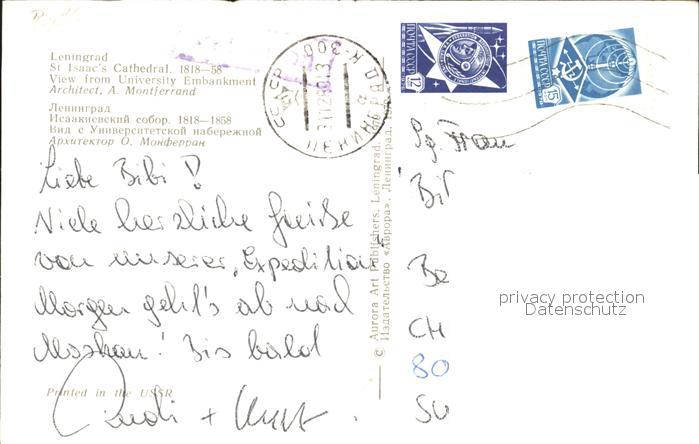 Leningrad
St Isaac's Cathedral. 1818—58
View from University Embankment
Architect, A. Montferrand
Ленинград
Исаакиевский собор. 1818—1858
Вид с Университетской набережной
Архитектор О. Монферран
Liebe Bibi!
Viele herzliche Grüße
von unserer „Expedition"
Morgen geht's ab nach
Moskau! Bis bald
Printed in the USSR
© Aurora Art Publishers, Leningrad,
Издательство «Аврора», Ленинград,
СССР
ЛЕНИНГРАД
ПОЧТА СССР
12
ПОЧТА СССР
15
Frau
Be
CH
80
privacy protection
Datenschutz